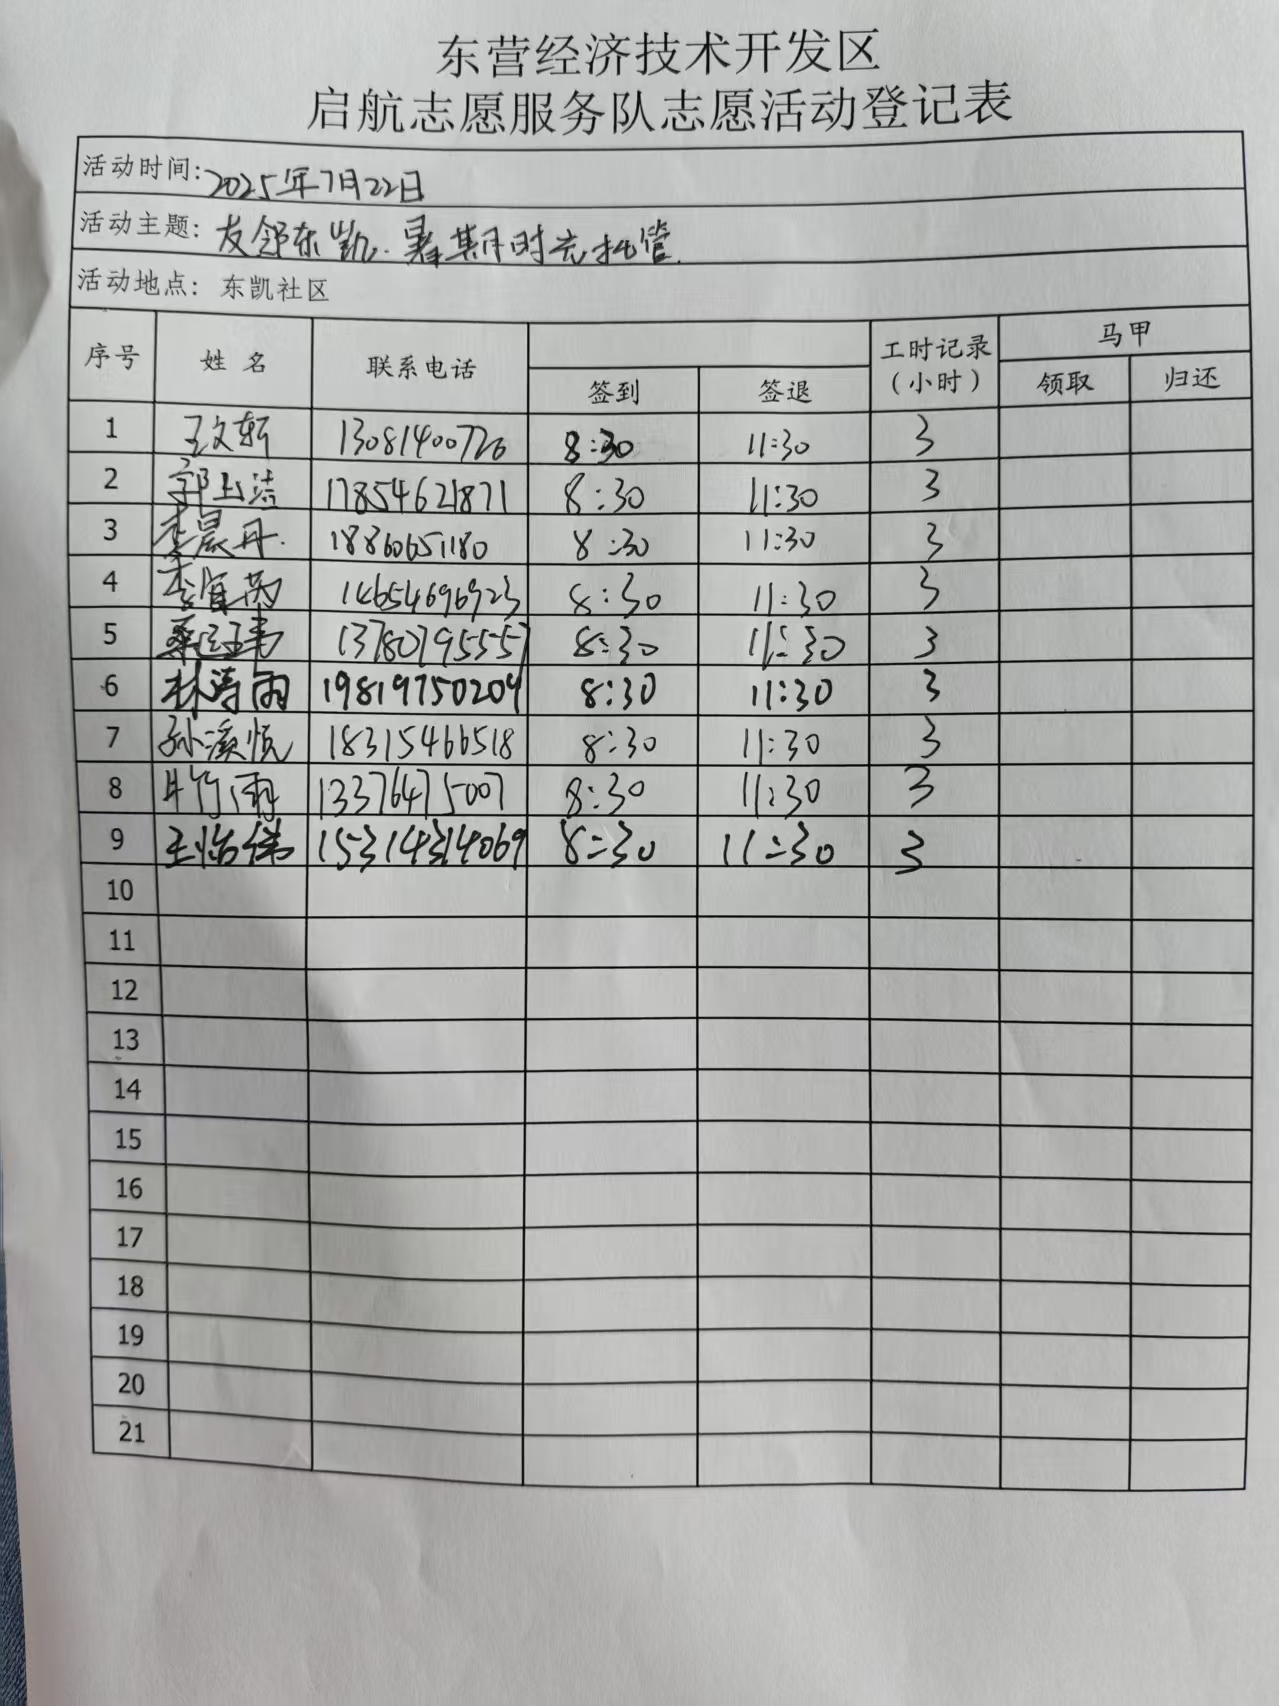 东营经济技术开发区
启航志愿服务队志愿活动登记表
活动时间: 2025年7月22日
活动主题: 友邻东凯·暑期时光托管
活动地点: 东凯社区
序号 姓名 联系电话 签到 签退 工时记录(小时) 马甲 领取 归还
1 王文轩 13081400726 8:30 11:30 3
2 17854621871 8:30 11:30 3
3 李晨丹 18860651180 8:30 11:30 3
4 李宜芮 14654696923 8:30 11:30 3
5 13780795557 8:30 11:30 3
6 林涛雨 19819750209 8:30 11:30 3
7 孙溪悦 18315466518 8:30 11:30 3
8 竹雨 13376475007 8:30 11:30 3
9 王怡 15314314069 8:30 11:30 3
10
11
12
13
14
15
16
17
18
19
20
21